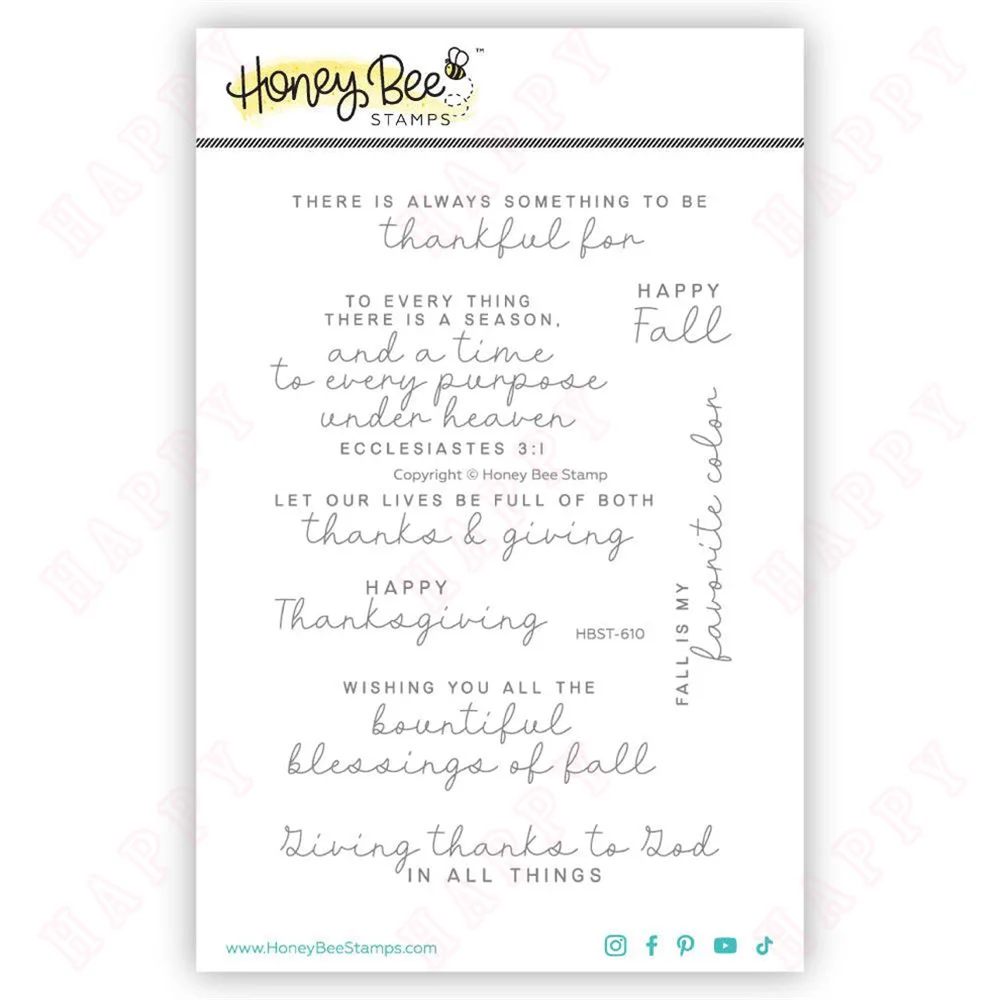 Honey Bee™
STAMPS
THERE IS ALWAYS SOMETHING TO BE
thankful for
HAPPY
Fall
TO EVERY THING
THERE IS A SEASON,
and a time
to every purpose
under heaven
ECCLESIASTES 3:1
Copyright © Honey Bee Stamp
LET OUR LIVES BE FULL OF BOTH
thanks & giving
FALL IS MY
favorite color
HAPPY
Thanksgiving
HBST-610
WISHING YOU ALL THE
bountiful
blessings of fall
Giving thanks to God
IN ALL THINGS
www.HoneyBeeStamps.com
HAPPY
HAPPY
HAPPY
HAPPY
HAPPY
HAPPY
HAPPY
HAPPY
HAPPY